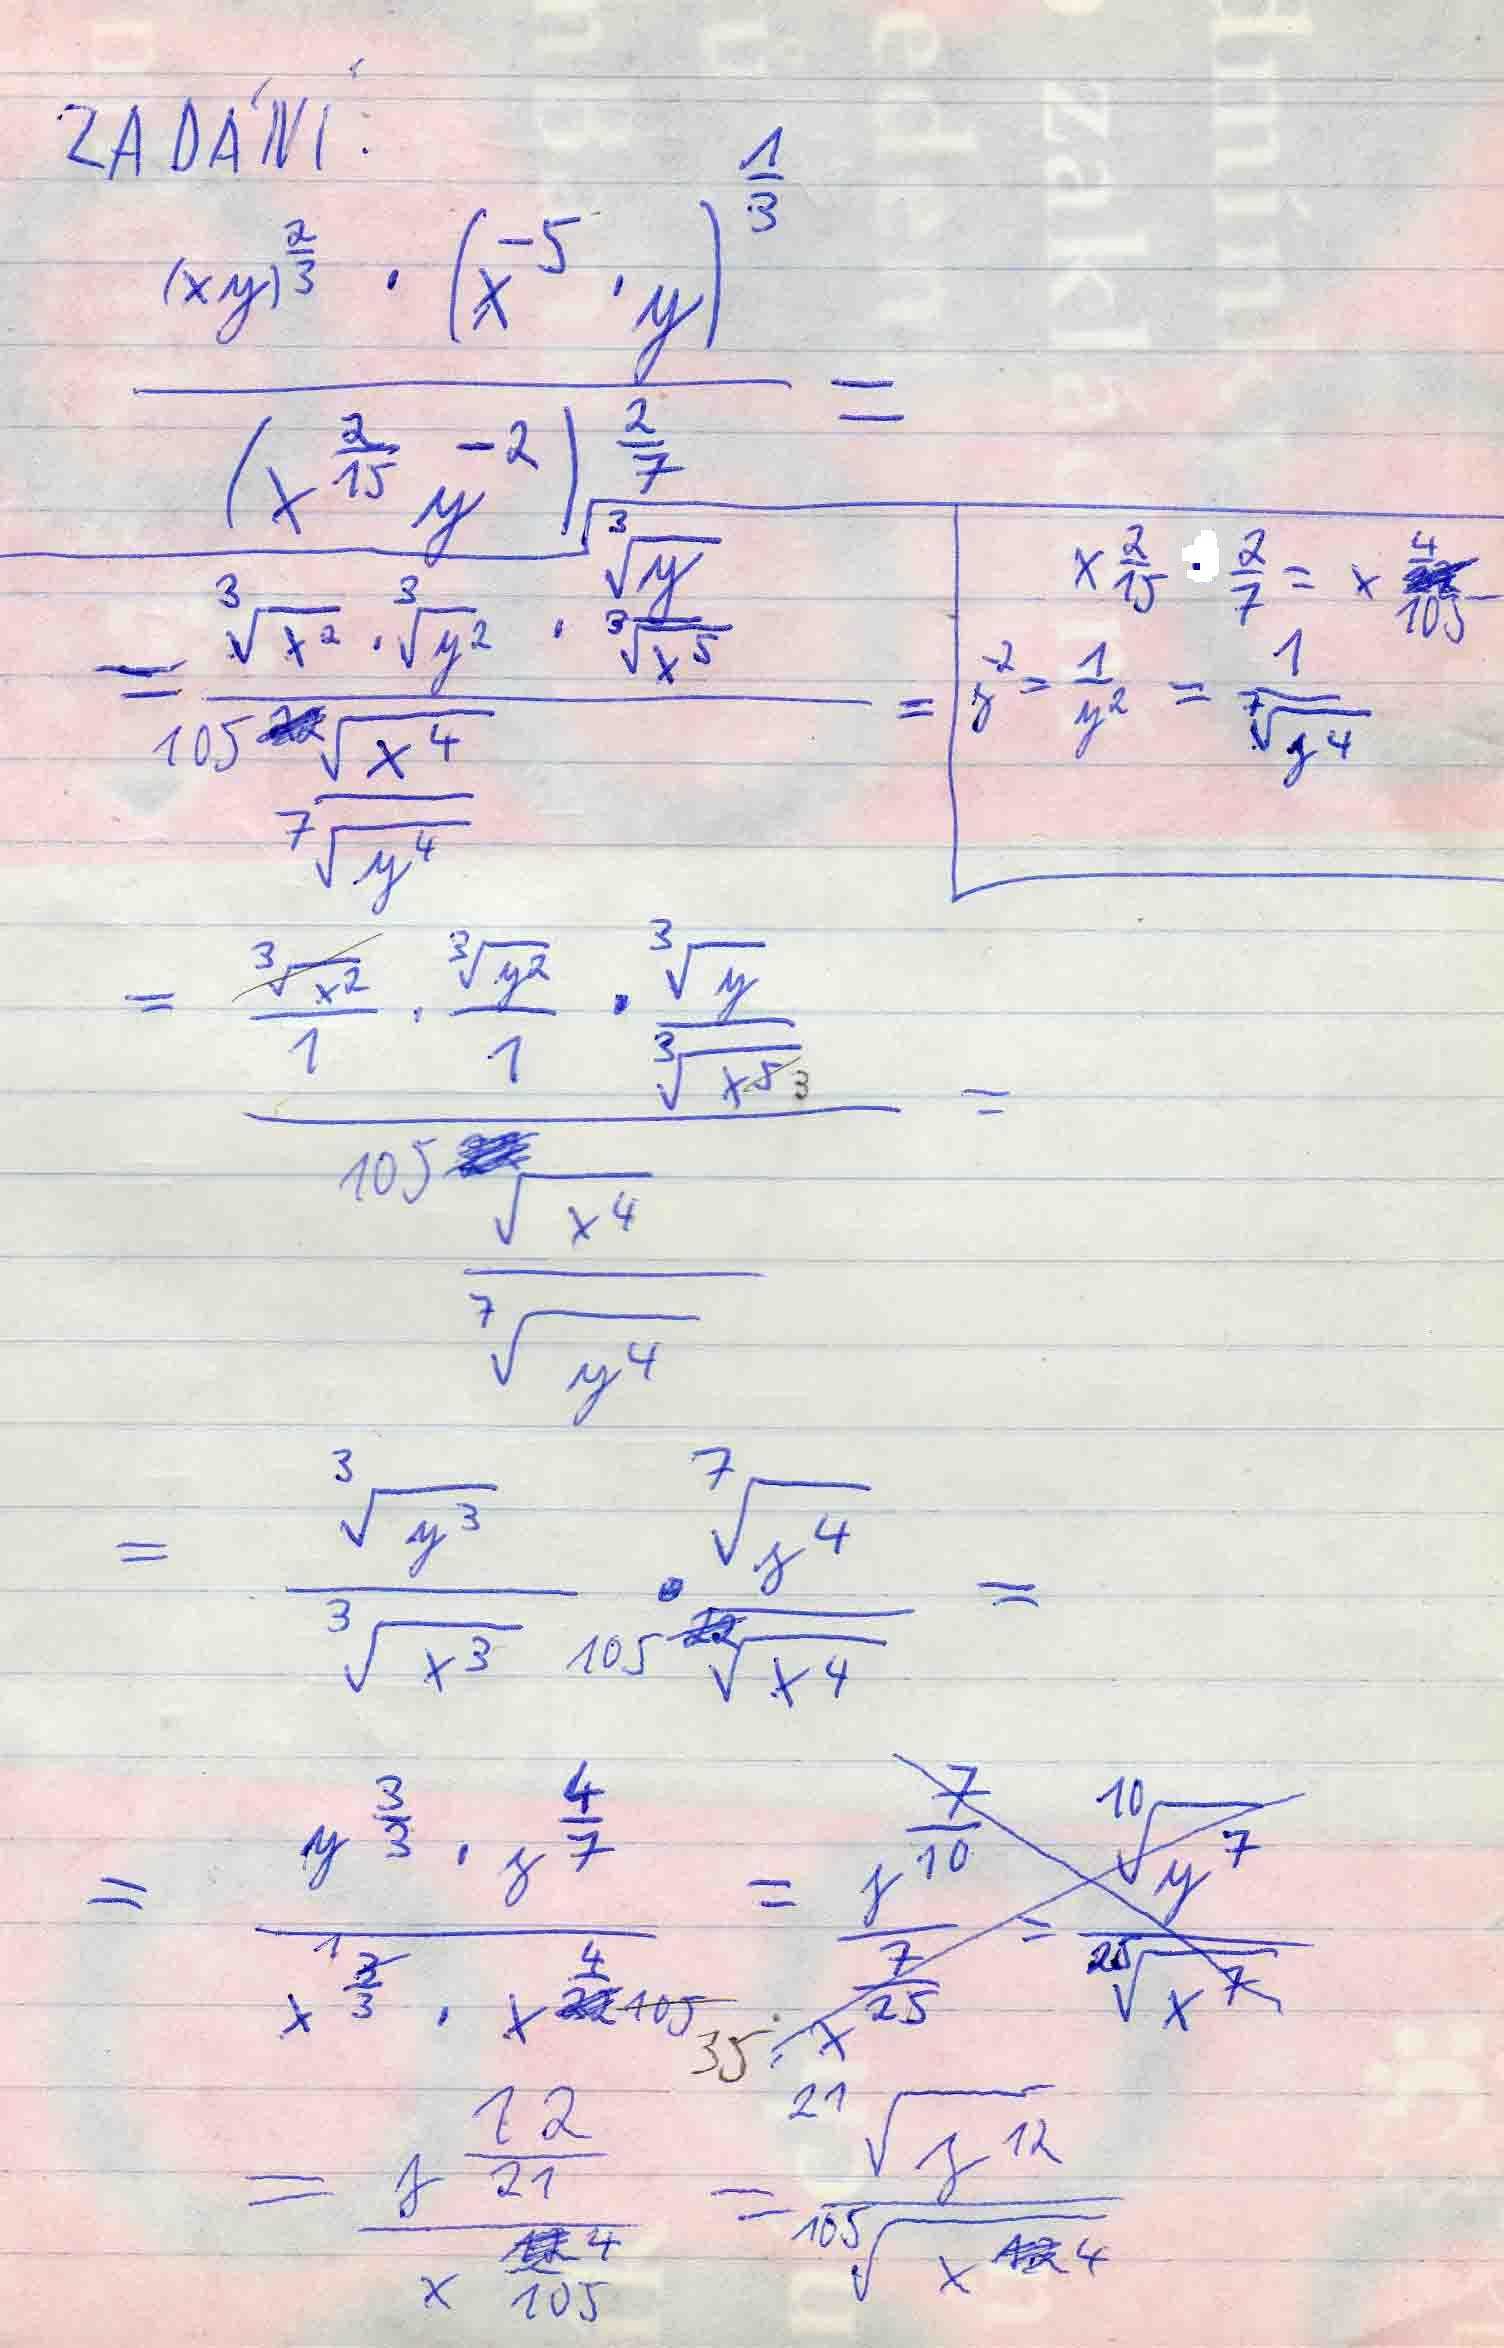 ZADÁNÍ:
\frac{(xy)^{\frac{2}{3}} \cdot (x^{-5} \cdot y)^{\frac{1}{3}}}{(x^{\frac{2}{15}} y^{-2})^{\frac{2}{7}}} =
x^{\frac{2}{15} \cdot \frac{2}{7}} = x^{\frac{4}{105}}
y^{-2} = \frac{1}{y^2} = \frac{1}{\sqrt[7]{y^4}}
= \frac{\sqrt[3]{x^2} \cdot \sqrt[3]{y^2} \cdot \frac{\sqrt[3]{y}}{\sqrt[3]{x^5}}}{\frac{\sqrt[105]{x^4}}{\sqrt[7]{y^4}}} =
= \frac{\frac{\sqrt[3]{x^2}}{1} \cdot \frac{\sqrt[3]{y^2}}{1} \cdot \frac{\sqrt[3]{y}}{\sqrt[3]{x^{5 3}}}}{\frac{\sqrt[105]{x^4}}{\sqrt[7]{y^4}}} =
= \frac{\sqrt[3]{y^3}}{\sqrt[3]{x^3}} \cdot \frac{\sqrt[7]{y^4}}{\sqrt[105]{x^4}} =
= \frac{y^{\frac{3}{3}} \cdot y^{\frac{4}{7}}}{x^{1 \frac{3}{3}} \cdot x^{\frac{4}{105}}} = \frac{y^{\frac{7}{10}}}{x^{\frac{7}{25}}} = \frac{\sqrt[10]{y^7}}{\sqrt[25]{x^7}}
35
= \frac{y^{\frac{12}{21}}}{x^{\frac{4}{105}}} = \frac{\sqrt[21]{y^{12}}}{\sqrt[105]{x^4}}